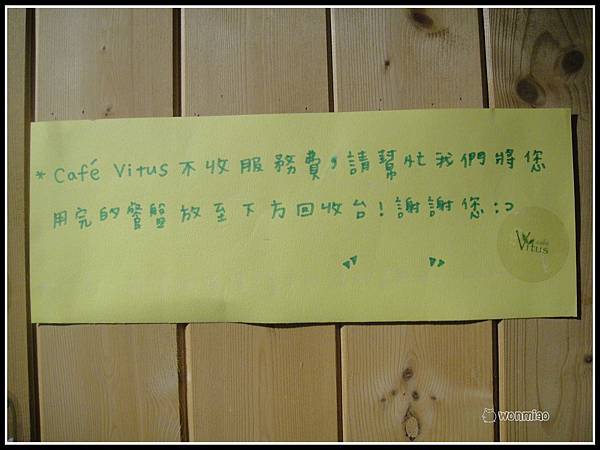 * Café Vitus 不收服務費，請幫忙我們將您
用完的餐盤放至下方回收台！謝謝您 :⊃
café
Vitus
wonmiao